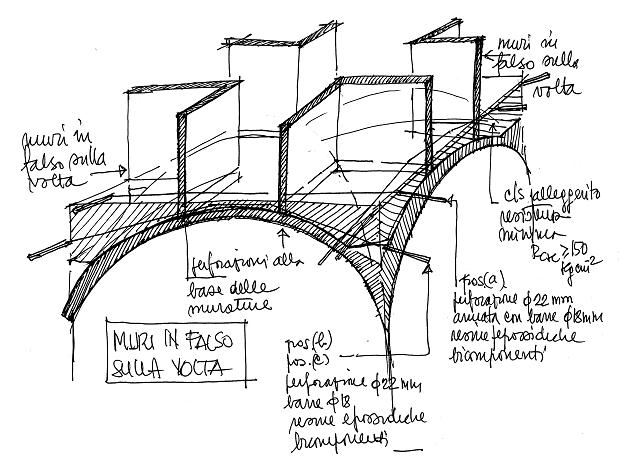 muri in
falso sulla
volta
muri in
falso sulla
volta
cls alleggerito
resistenza
minima
Rck ≥ 150
kg cm-2
perforazioni alla
base delle
murature
pos(a)
perforazione φ22 mm
armata con barre φ18mm
resine epossidiche
bicomponenti
MURI IN FALSO
SULLA VOLTA
pos(b)
pos.(c)
perforazione φ22 mm
barre φ18
resine epossidiche
bicomponenti